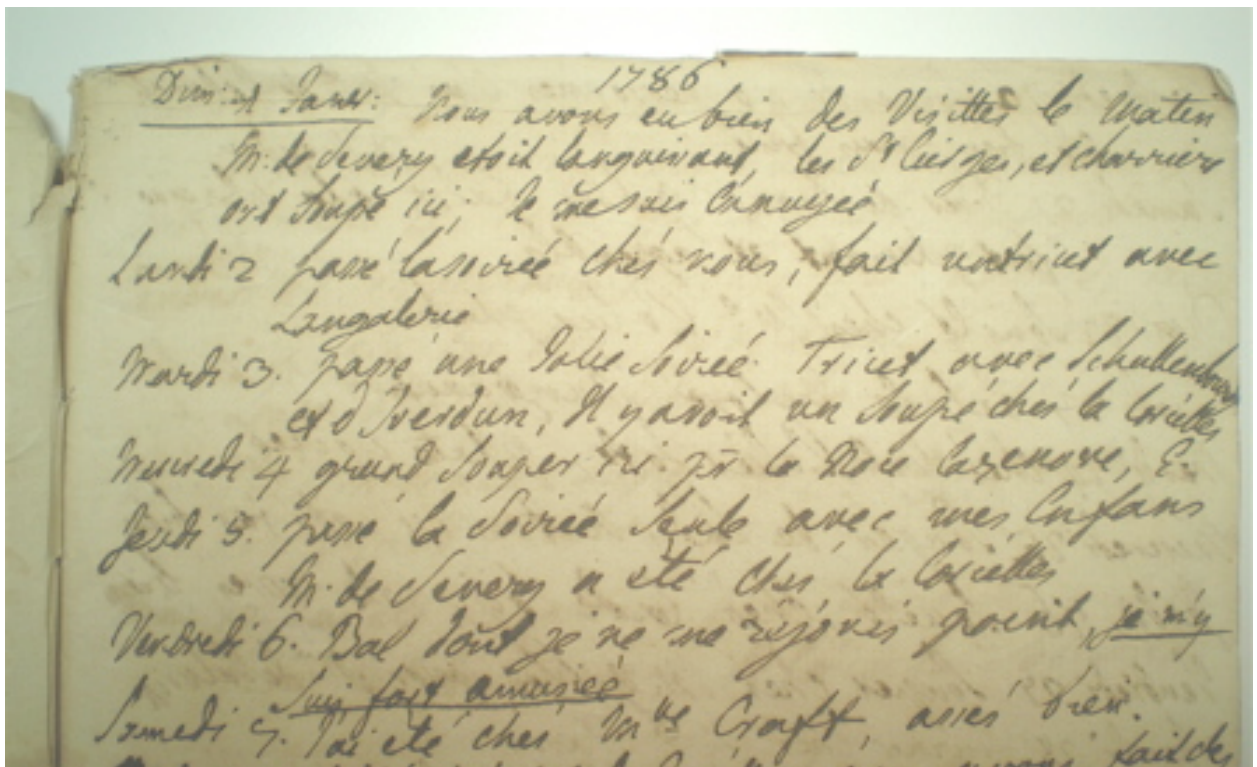 1786
Dim: 1 Janv: Nous avons eu bien des Visittes le matin
M: de Severy etoit languissant, les St Cierges, et charriere
ont soupé ici; Je me suis ennuyée
Lundi 2 passé la soirée chés nous, fait un trict avec
Langalerie
Mardi 3. passé une Jolie Soirée. Trict avec Schullembourg
et d'Iverdun, Il y avoit un soupé chés la
Mercredi 4 grand Souper ici pr la Noce Cazenove, E.
Jeudi 5. passé la Soirée seule avec mes Enfans
M. de Severy a été chés la
Vendredi 6. Bal dont je ne me rejouis point, je m'y
suis fort amusée
Samedi 7. J'ai eté chés Mme Craft, assés bien.
fait des